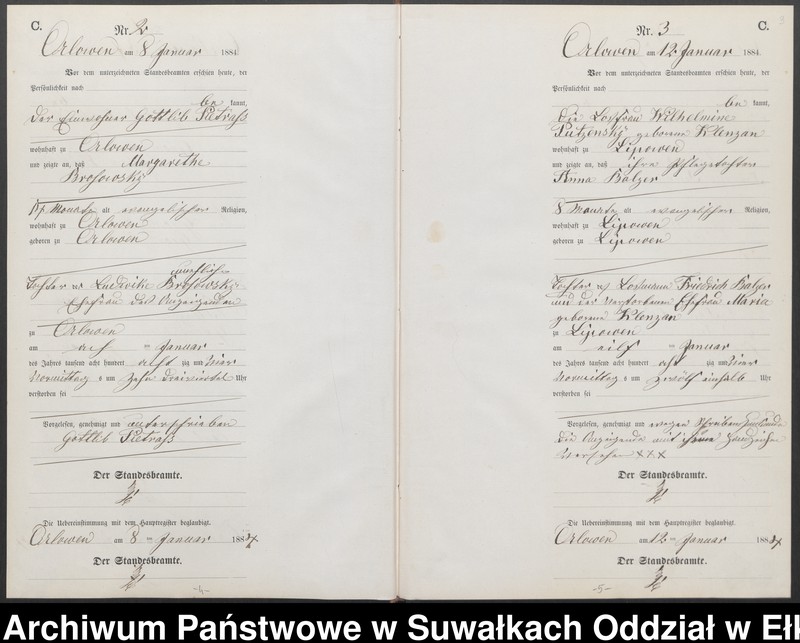 C.
Nr. 2
Orlowen am 8 Januar 1884
Vor dem unterzeichneten Standesbeamten erschien heute, der
Persönlichkeit nach
be kannt,
der Einwohner Gottlieb Pietraß
wohnhaft zu Orlowen
und zeigte an, daß Margarethe
Brosowsky
Monate alt evangelischer Religion,
wohnhaft zu Orlowen
geboren zu Orlowen
unehelichen
Tochter der Ludwike Brosowsky
Ehefrau des Anzeigenden
zu Orlowen
am acht ten Januar
des Jahres tausend acht hundert acht zig und vier
Vormittag s um zehn dreiviertel Uhr
verstorben sei
Vorgelesen, genehmigt und unterschrieben
Gottlieb Pietraß
Der Standesbeamte.
Die Uebereinstimmung mit dem Hauptregister beglaubigt.
Orlowen am 8 ten Januar 1884
Der Standesbeamte.
-4-
Nr. 3
C.
Orlowen am 12 Januar 1884
Vor dem unterzeichneten Standesbeamten erschien heute, der
Persönlichkeit nach
be kannt,
die Losfrau Wilhelmine
geborene Klenzan
wohnhaft zu Lipowen
und zeigte an, daß ihre Pflegetochter
Anna Balzer
8 Monate alt evangelischer Religion,
wohnhaft zu Lipowen
geboren zu Lipowen
Tochter des Losmann Friedrich Balzer
und der verstorbenen Ehefrau Maria
geborene Klenzan
zu Lipowen
am eilf ten Januar
des Jahres tausend acht hundert acht zig und vier
Vormittag s um zwölf einhalb Uhr
verstorben sei
Vorgelesen, genehmigt und wegen Schreibensunkunde
die Anzeigende mit ihrem Handzeichen
versehen XXX
Der Standesbeamte.
Die Uebereinstimmung mit dem Hauptregister beglaubigt.
Orlowen am 12 ten Januar 1884
Der Standesbeamte.
-5-
Archiwum Państwowe w Suwałkach Oddział w Eł